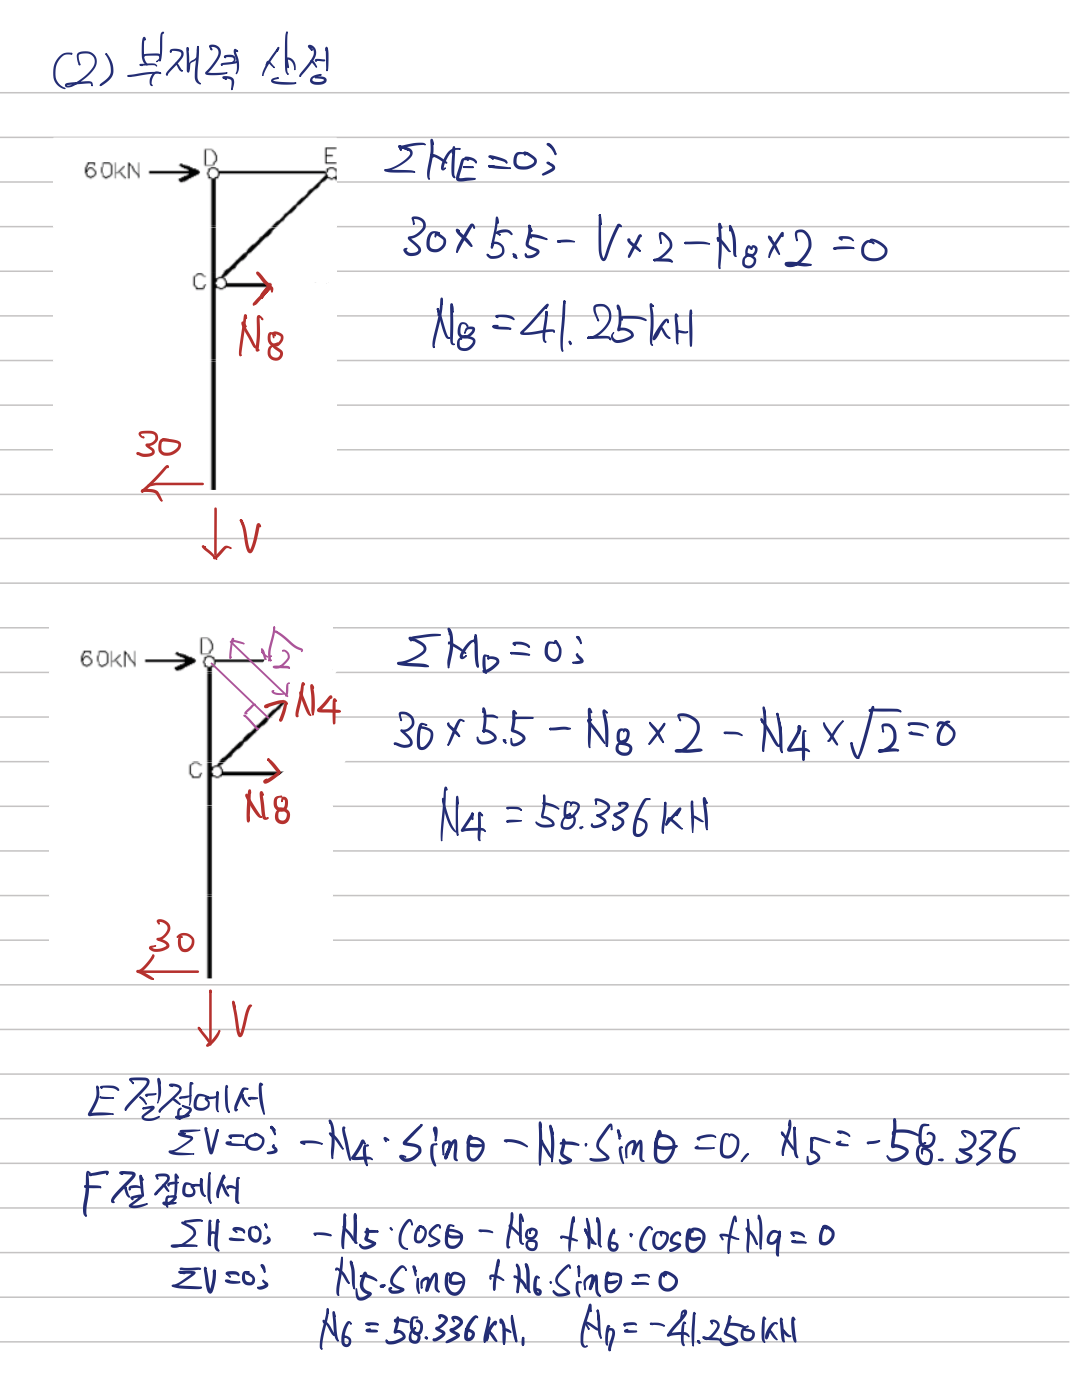 (2) 부재력 산정
60kN D E
ΣM_E=0;
30×5.5-V×2-N8×2=0
C
N8
N8=41.25kN
30
V
60kN D √2
ΣM_D=0;
N4
30×5.5-N8×2-N4×√2=0
C
N8
N4=58.336kN
30
V
E절점에서
ΣV=0; -N4·Sinθ-N5·Sinθ=0, N5=-58.336
F절점에서
ΣH=0; -N5·Cosθ-N8+N6·cosθ+N9=0
ΣV=0; N5·Sinθ+N6·Sinθ=0
N6=58.336kN, N9=-41.250kN